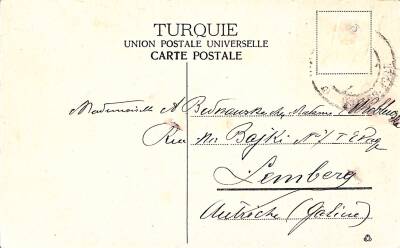 TURQUIE
UNION POSTALE UNIVERSELLE
CARTE POSTALE
Mademoiselle A Bednawska chez Madame
Rue Bajki Nº 7 Etag
Lemberg
Autriche (Galicie)